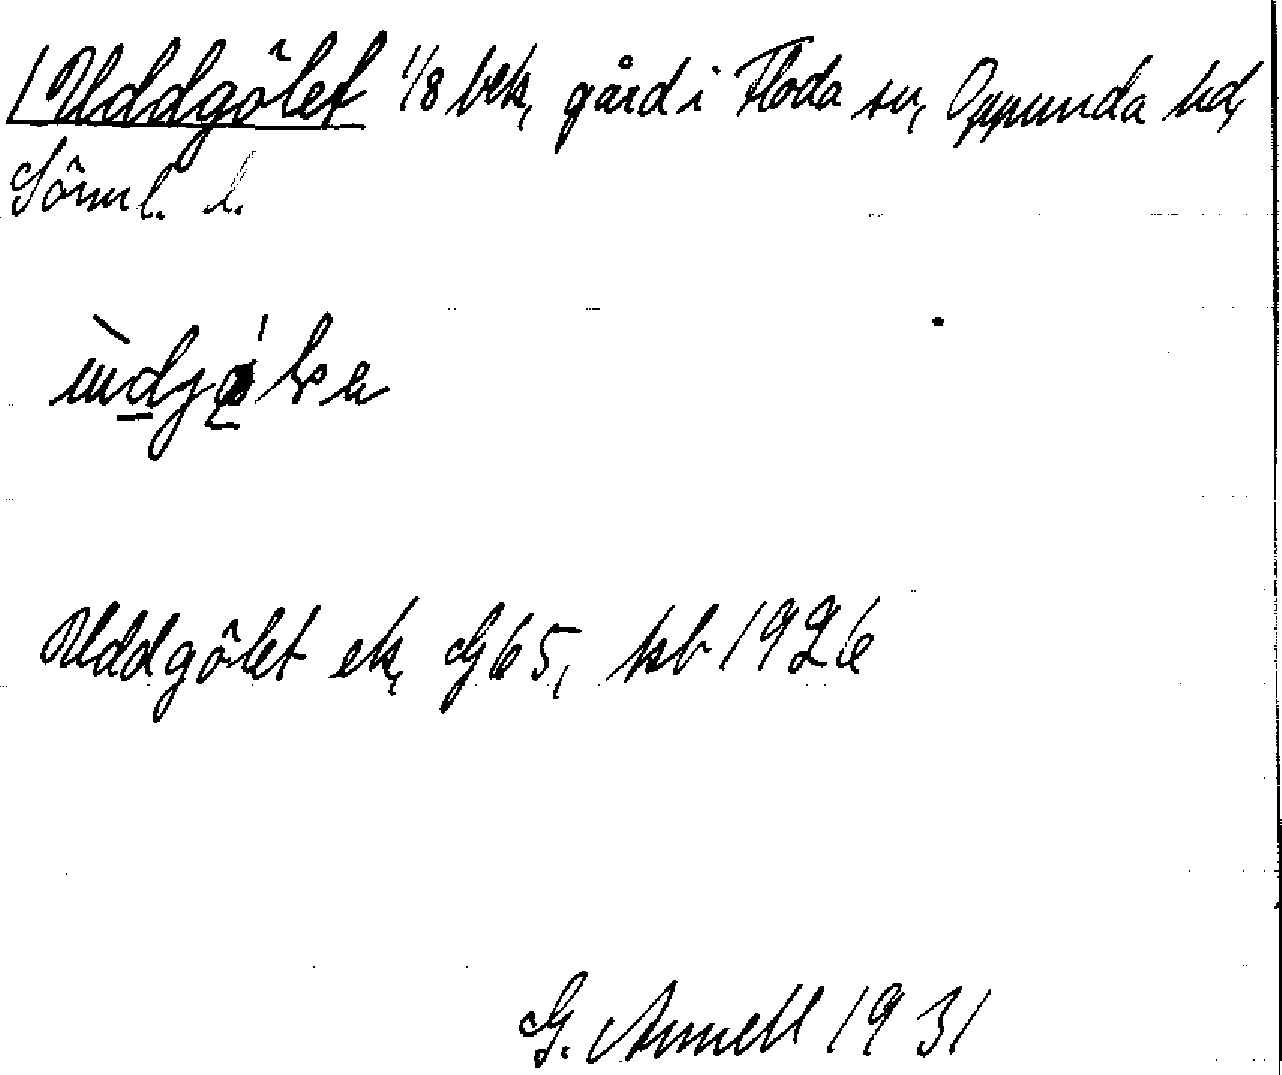 Uddgölet 1/8 bek, gård i Floda sn, Oppunda hd,
Sörml. l.
Uddgölet ek, G 65, kb 1926
G. Annell 1931